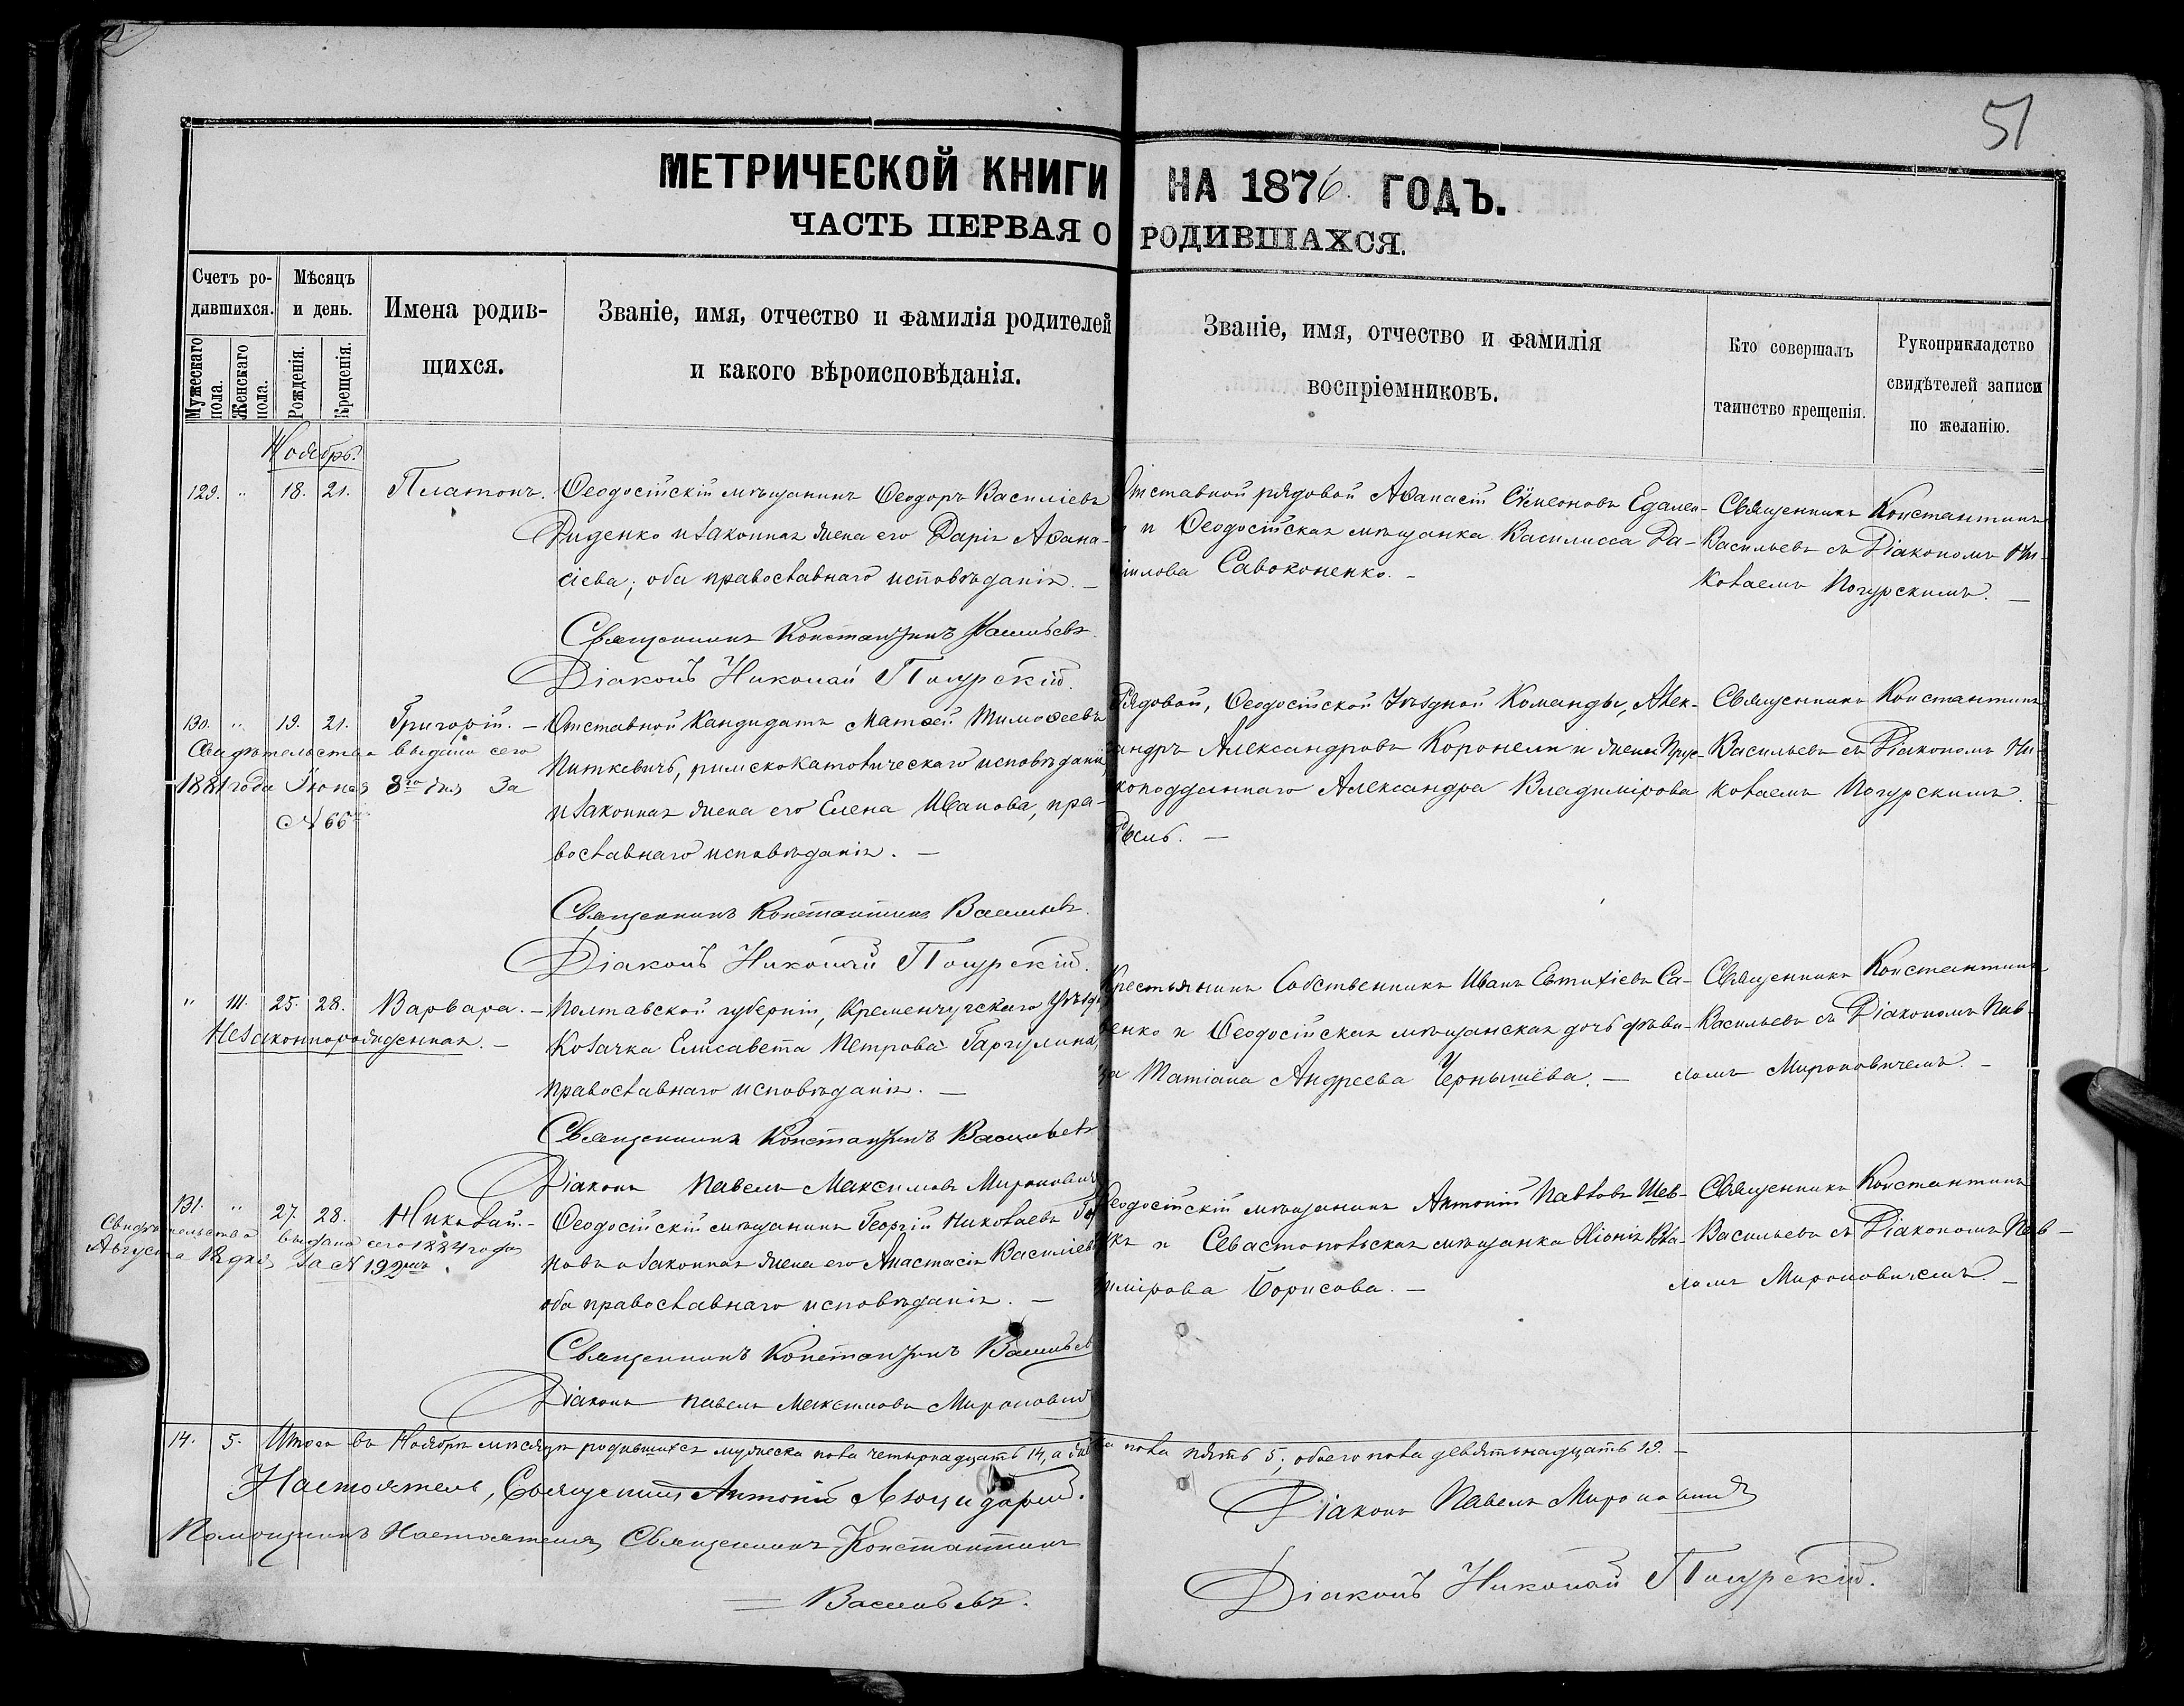 51
МЕТРИЧЕСКОЙ КНИГИ НА 1876 ГОДЪ.
ЧАСТЬ ПЕРВАЯ О РОДИВШАХСЯ.
Счетъ ро-
дившихся.
Мѣсяцъ
и день.
Мужескаго
пола.
Женскаго
пола.
Рожденія.
Крещенія.
Имена родив-
щихся.
Званіе, имя, отчество и фамилія родителей
и какого вѣроисповѣданія.
Званіе, имя, отчество и фамилія
воспріемниковъ.
Кто совершалъ
таинство крещенія.
Рукоприкладство
свидѣтелей записи
по желанію.
Ноябрь.
129. " 18. 21. Платонъ.
Ѳеодосійскій мѣщанинъ Ѳеодоръ Василіевъ
Диденко и законная жена его Дарія Аѳана-
сіева; оба православнаго исповѣданія. –
Священникъ Константинъ Васильевъ.
Діаконъ Николай
Отставной рядовой Аѳанасій Сѵмеоновъ
и Ѳеодосійская мѣщанка Василисса Да-
Савоконенко. –
Священникъ Константинъ
Васильевъ съ Діакономъ Ни-
колаемъ
130. " 19. 21. Григорій. –
Свидѣтельство выдано сего
1881 года Іюня 3го дня За
№ 66
Отставной Кандидатъ Матѳей Тимоѳеевъ
Питкевичъ, римскокатолическаго исповѣданія,
и законная жена его Елена Иванова, пра-
вославнаго исповѣданія. –
Священникъ Константинъ Васильевъ.
Діаконъ Николай
Рядовой, Ѳеодосійской Уѣздной Команды, Алек-
сандръ Александровъ Коронели и жена Прус-
коподданнаго Александра Владимірова
Священникъ Константинъ
Васильевъ съ Діакономъ Ни-
колаемъ
" 111. 25. 28. Варвара. –
Незаконнорожденная. –
Полтавской губерніи, Кременчугскаго уѣзда
Козачка Елисавета Петрова Гаргулина,
православнаго исповѣданія. –
Священникъ Константинъ Васильевъ
Діаконъ Павелъ Максимовъ Мироновичъ
Крестьянинъ Собственникъ Иванъ Евтихіевъ Са-
енко и Ѳеодосійская мѣщанская дочь дѣви-
ца Татіана Андреева Чернышёва. –
Священникъ Константинъ
Васильевъ съ Діакономъ Пав-
ломъ Мироновичемъ. –
131. " 27. 28. Николай. –
Свидѣтельство выдано сего года
Августа дня За № 192
Ѳеодосійскій мѣщанинъ Георгій Николаевъ
новъ и законная жена его Анастасія Василіева
оба православнаго исповѣданія. –
Священникъ Константинъ Васильевъ
Діаконъ Павелъ Максимовъ Мироновичъ
Ѳеодосійскій мѣщанинъ Антоній Павловъ Шев-
и Севастопольская мѣщанка Хіонія Вла-
димірова Борисова. –
Священникъ Константинъ
Васильевъ съ Діакономъ Пав-
ломъ Мироновичемъ. –
14. 5. Итого въ Ноябрѣ мѣсяцѣ родившихся мужеска пола четырнадцать 14, а женска пола пять 5; обоего пола девятьнадцать 19. –
Настоятель, Священникъ Антоній
Помощникъ Настоятеля Священникъ Константинъ
Васильевъ.
Діаконъ Павелъ Мироновичъ
Діаконъ Николай